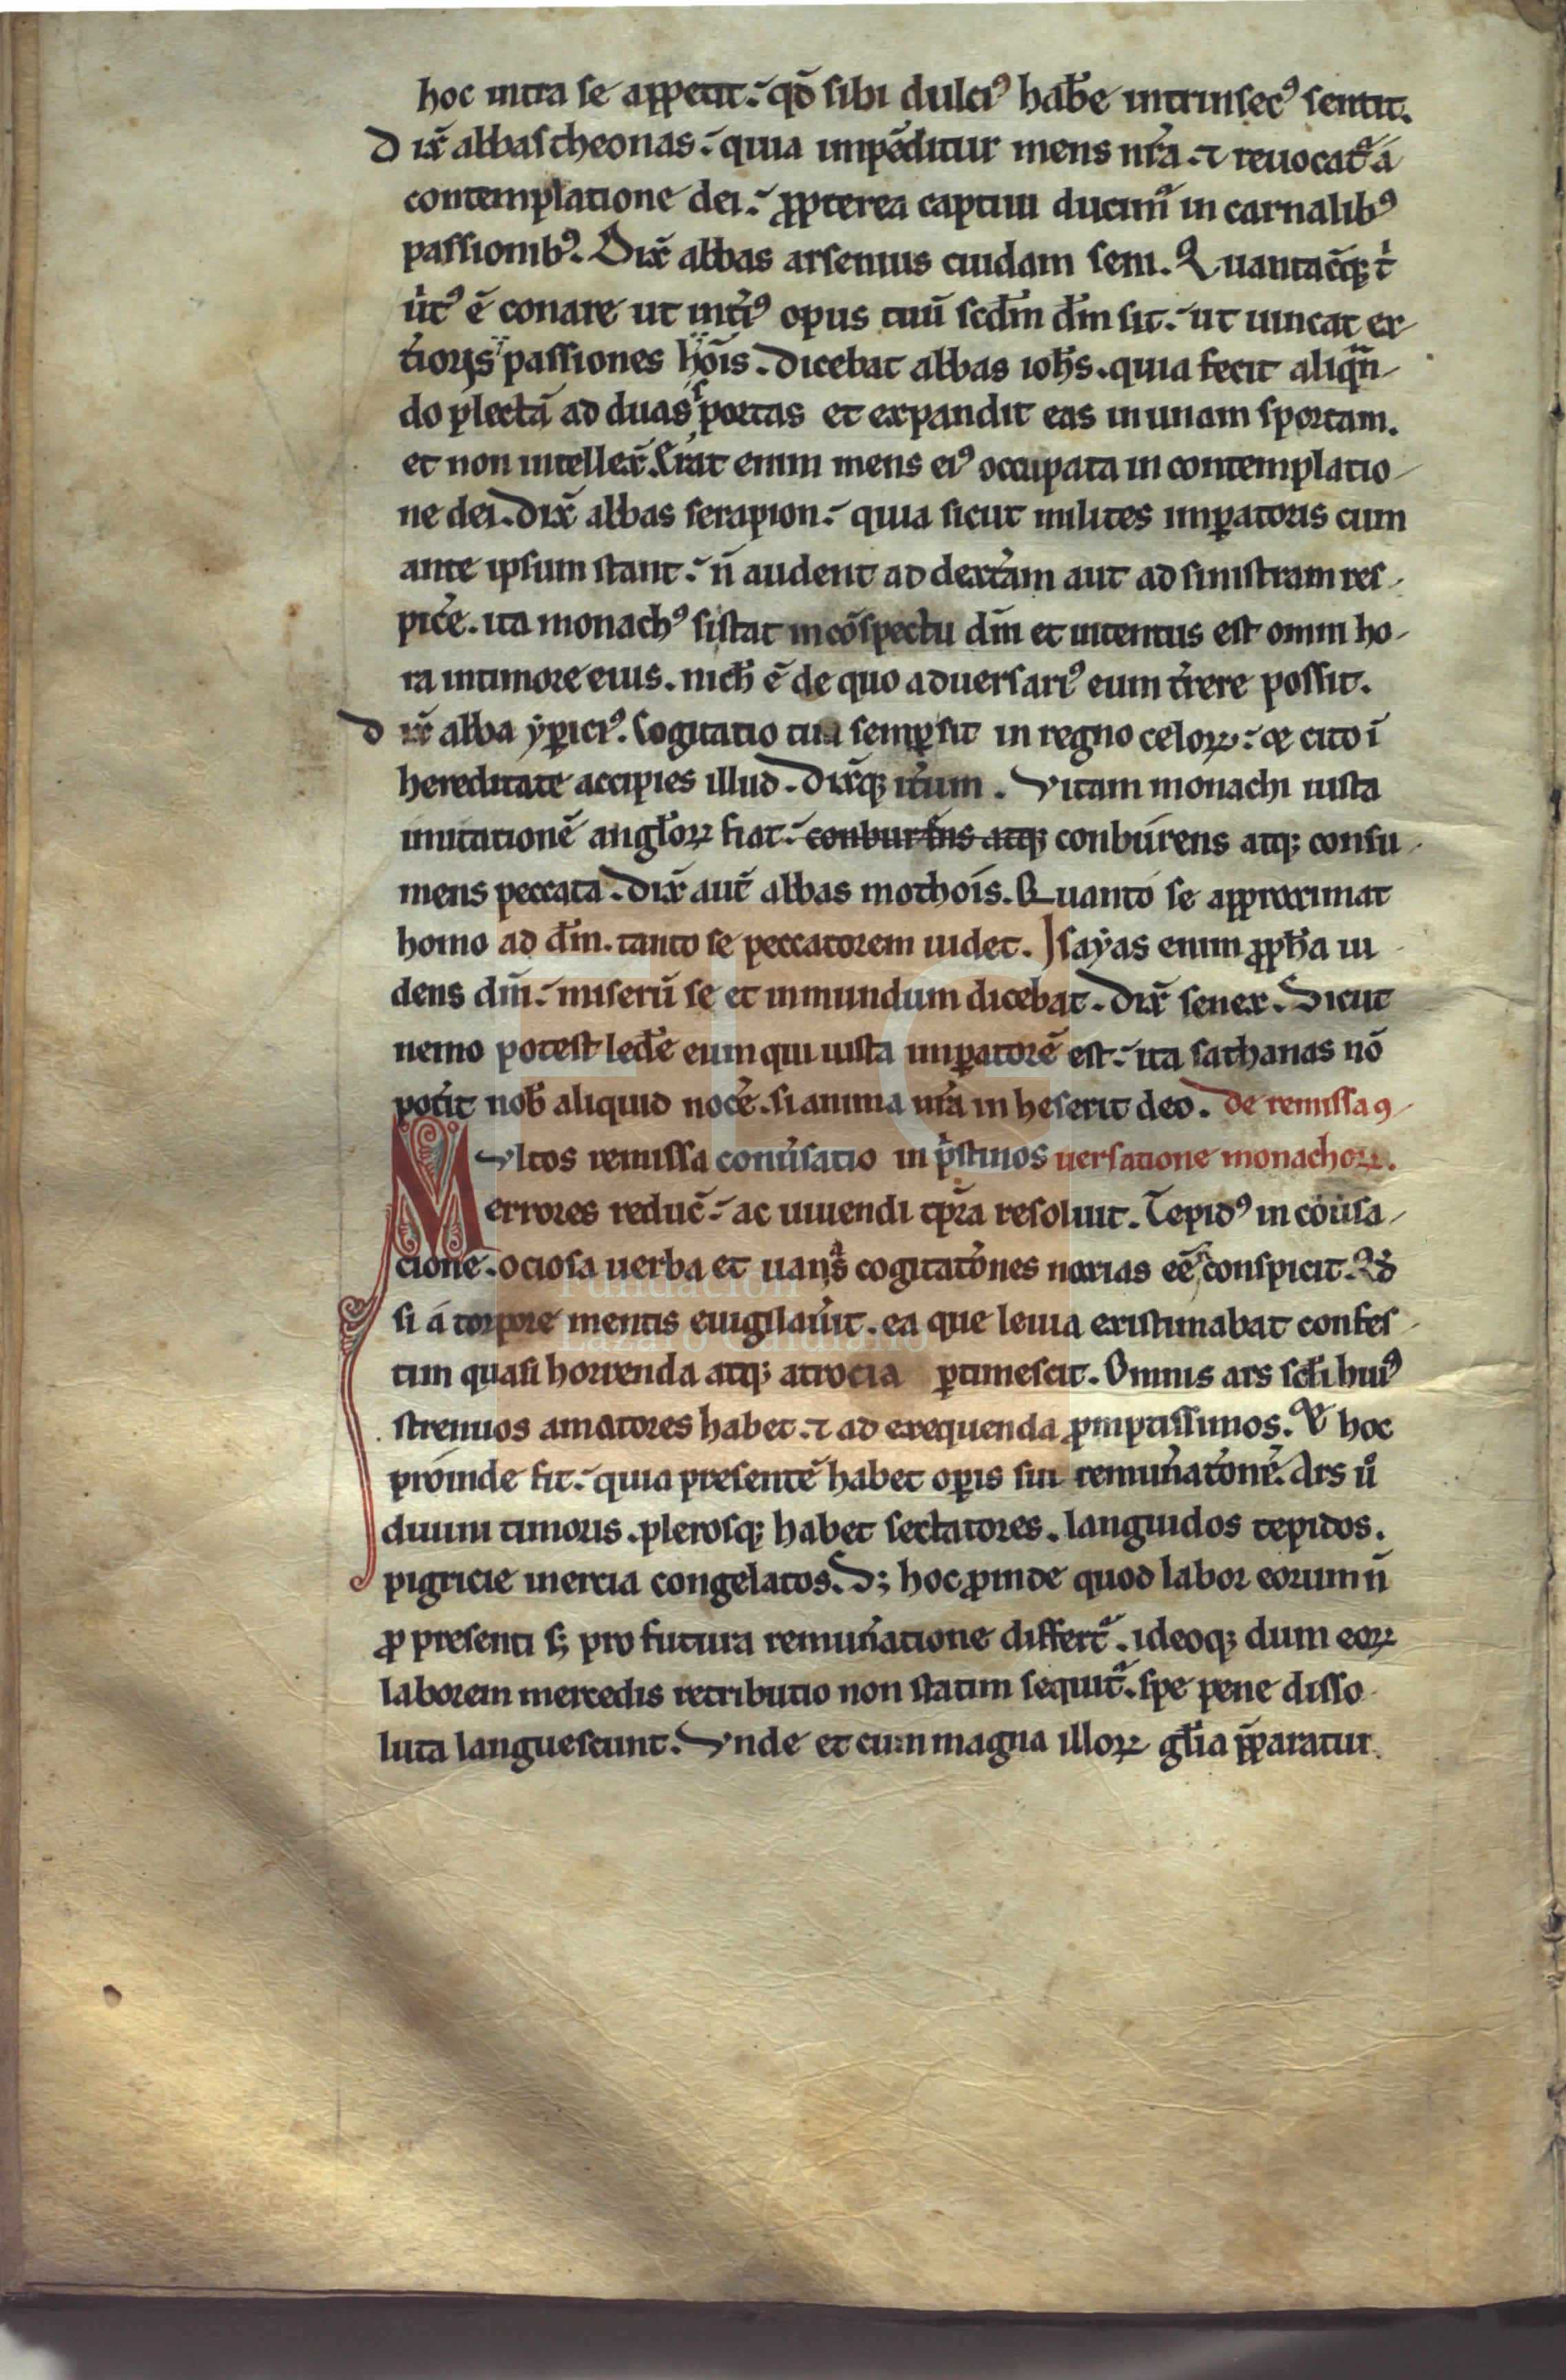 hoc intra se appetit. qđ sibi dulciꝰ habe͂ intrinsecꝰ sentit.
Dix̄ abbas theonas. quia impēditur mens nr̄a. ⁊ reuocat᷑ á
contemplatione dei. ꝓpterea captiui ducim᷑ in carnalibꝰ
passionibꝰ. Dix̄ abbas arsenius cuidam seni. Quantacūqꝫ t͛
uirtꝰ ē conare ut int͛iꝰ opus tuū scđm dm̄ sit. ut uincat ex
t͛iorıs passiones hōis. Dicebat abbas ioħs. quia fecit aliqn̄
do plectā ad duas sportas et expandit eas in unam sportam.
et non intellex̄. Erat enim mens eiꝰ occupata in contemplatio
ne dei. Dix̄ abbas serapion. quia sicut milites imꝑatoris cum
ante ipsum stant. n̄ audent ad dext͛am aut ad sinistram res
pic͛e. ita monachꝰ si stat in cōspectu dm̄ et intentus est omni ho
ra in timore eius. nich̄ ē de quo aduersariꝰ eum t͛rere possit.
Dix̄ abba ẏꝑiciꝰ. Cogitatio tua semꝑ sit in regno celoꝝ. & cito ī
hereditate accipies illud. Dix̄qꝫ it͛um. Vitam monachi iusta
imitationē angl̄oꝝ fiat. conburens atqꝫ conburens atqꝫ consu
mens peccata. Dix̄ aut̄ abbas mothois. Quanto se approximat
homo ad dm̄. tanto se peccatorem uidet. Isaẏas enim ꝓpħa ui
dens dm̄. miserū se et inmundum dicebat. Dix̄ senex. Sicut
nemo potest led͛e eum qui iusta imꝑatorē est. ita sathanas nō
pot͛it nob̄ aliquid noc͛e. si anima nr̄a inheserit deo. de remissa ꝯ
MVltos remissa conu͛satio in p͛stinos uersatione monachoꝝ.
errores reduc̄. ac uiuendi tp̄ra resoluit. Tepidꝰ in cōu͛sa
cione. ociosa uerba et uanas cogitat͛ones noxias eē n̄ conspicit. Qđ
si á torpore mentis euigilau͛it. ea que leuia existimabat confes
tim quasi horrenda atqꝫ atrocia ꝑtimescit. Omnis ars scl̄i huiꝰ
strenuos amatores habet. ⁊ ad exequenda ꝓmptissimos. & hoc
proinde fit. quia presentē habet oꝑis sui remun͛at͛onē. Ars u͛o
diuini timoris. plerosqꝫ habet sectatores. languidos tepidos.
pigricie inercia congelatos. Sꝫ hoc ꝓinde quod labor eorum n̄
ꝓ presenti sꝫ pro futura remun͛atione differt᷑. ideoqꝫ dum eoꝝ
laborem mercedis retributio non statim sequit᷑. spe pene disso
luta languescunt. Vnde et cum magna illoꝝ gl̄ia p̄paratur.